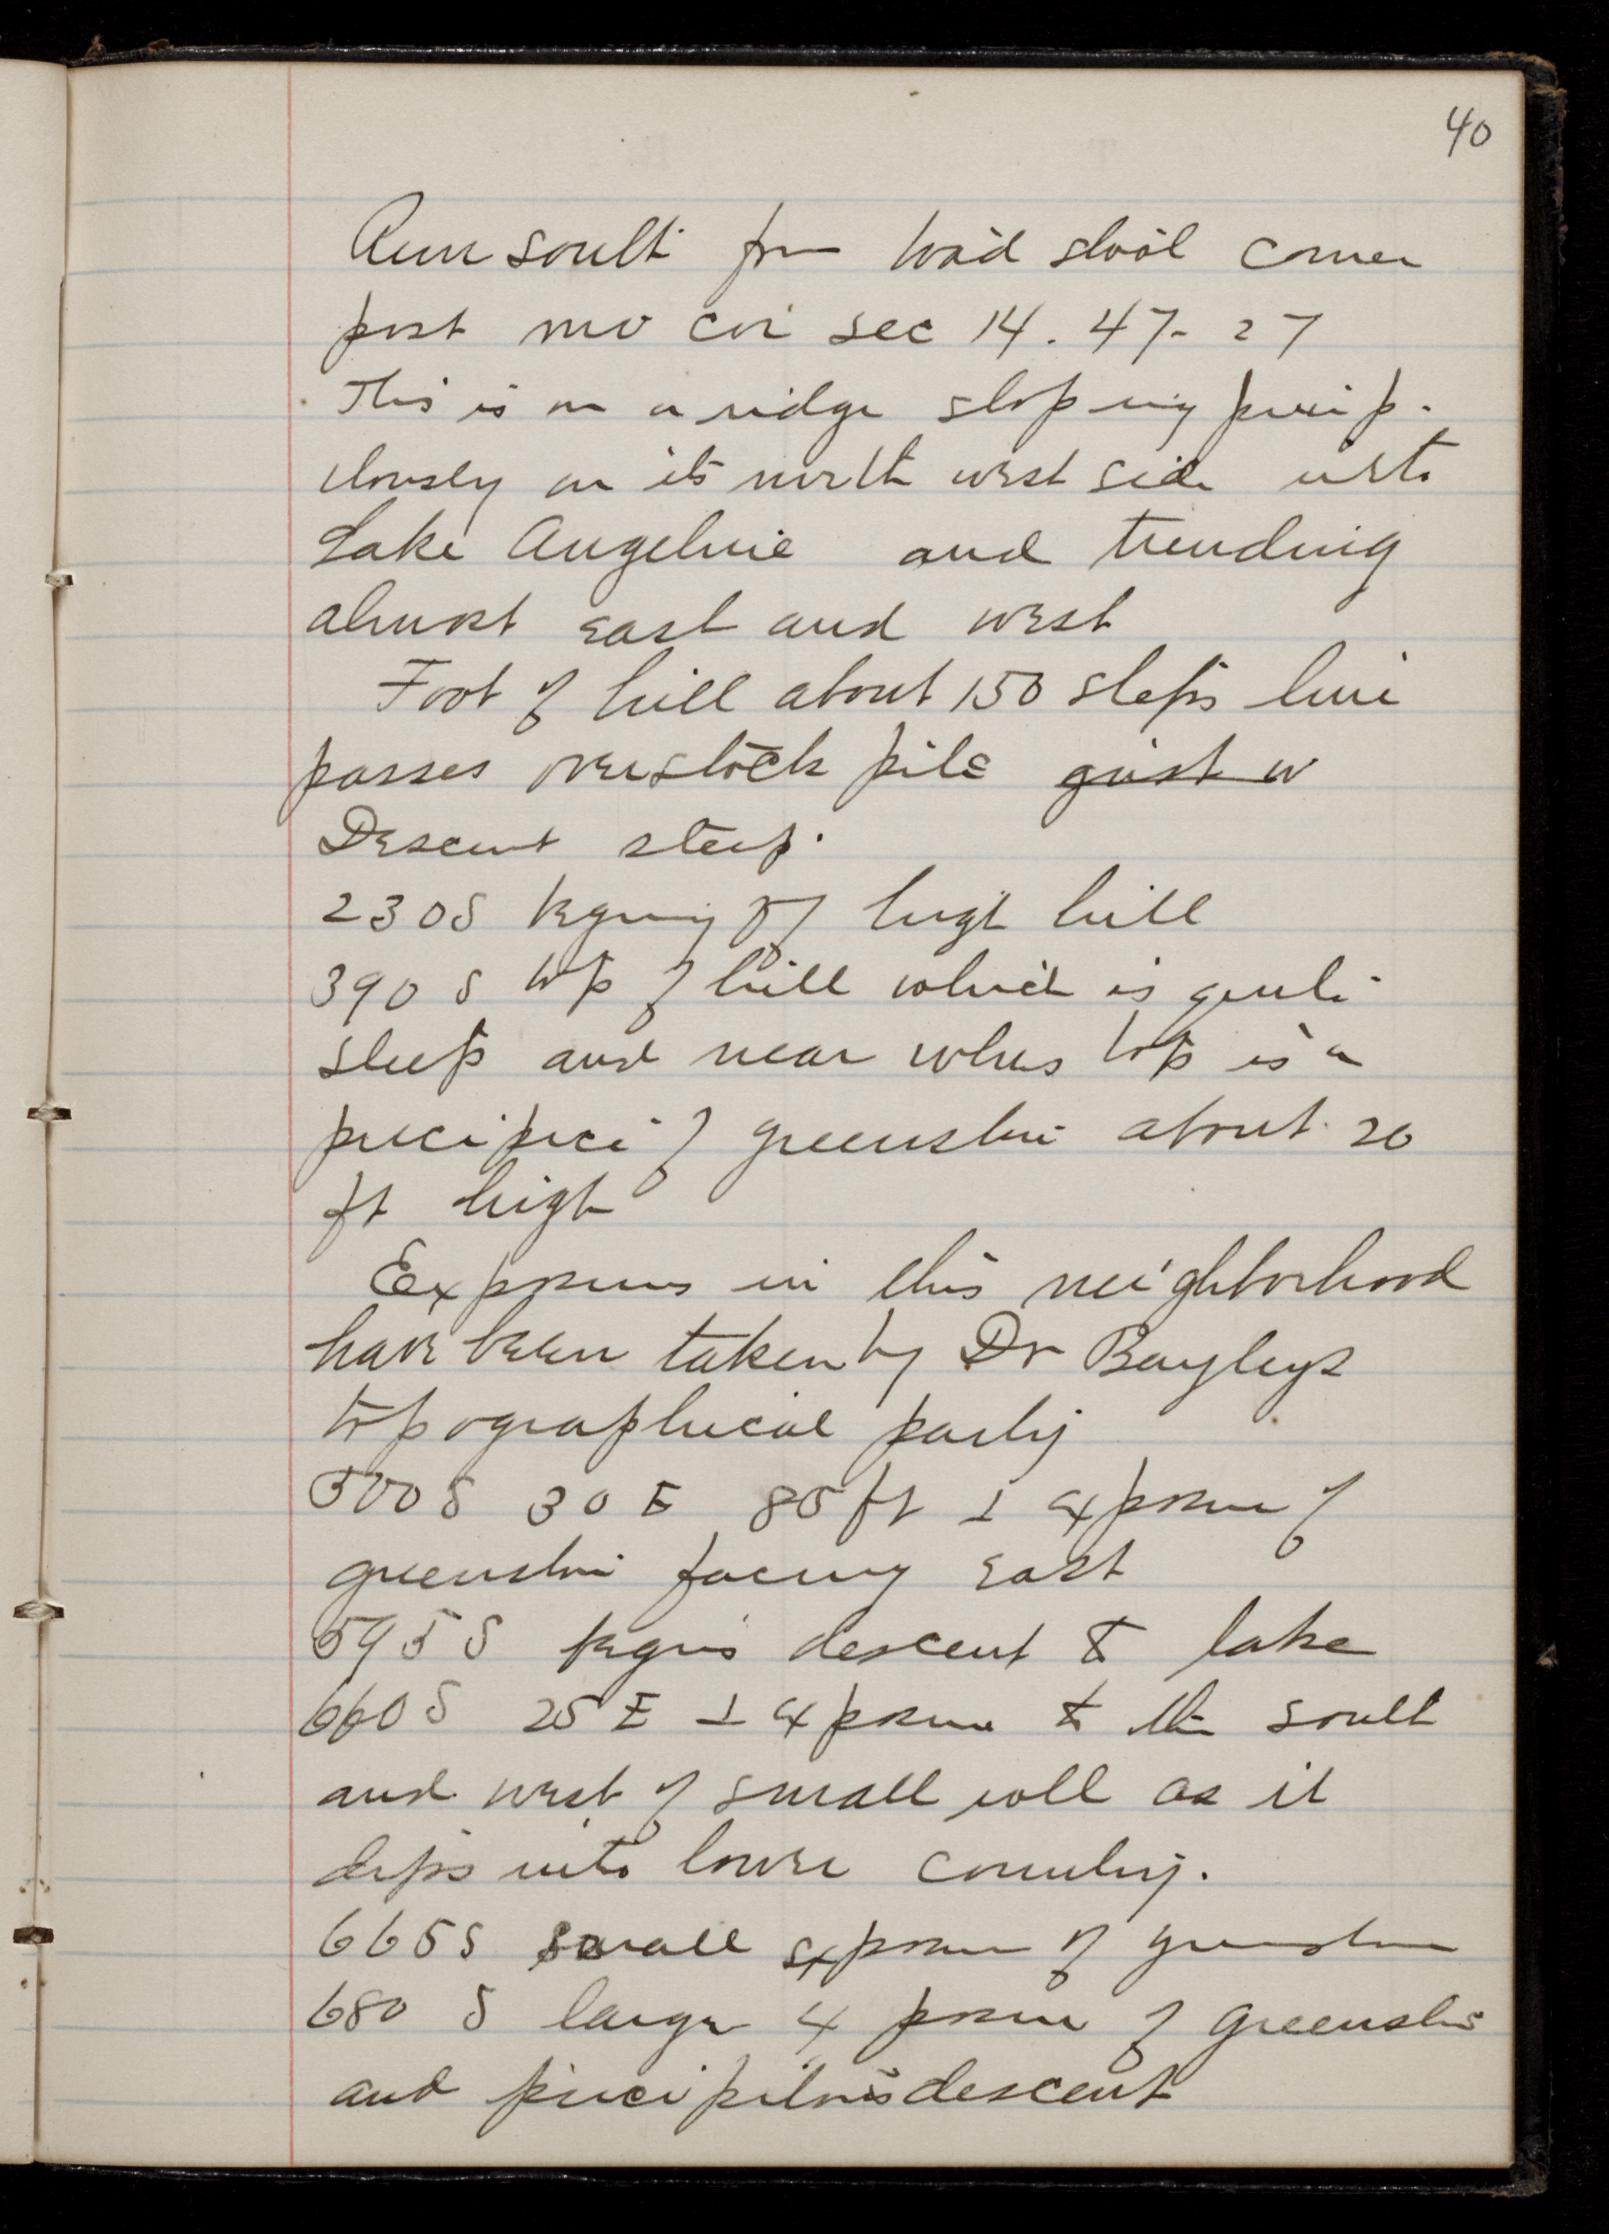 40
Run south from
post nw cor sec 14. 47-27
This is on a ridge sloping precip-
itously on its north west side into
Lake Angeline and trending
almost east and west
Foot of hill about 150 steps line
passes over stock pile
Descent steep.
230 S begining of high hill
390 S top of hill which is quite
steep and near whose top is a
precipice of greenstone about 20
ft high
Exposures in this neighborhood
have been taken by Dr Bayleys
topographical party
500 S 30 E 85 ft ⊥ exposure of
greenstone facing east
595 S begins descent to lake
660 S 25 E ⊥ exposure to the south
and west of small roll as it
dips into lower country.
665 S small exposure of greenstone
680 S large exposure of greenstone
and precipitous descent